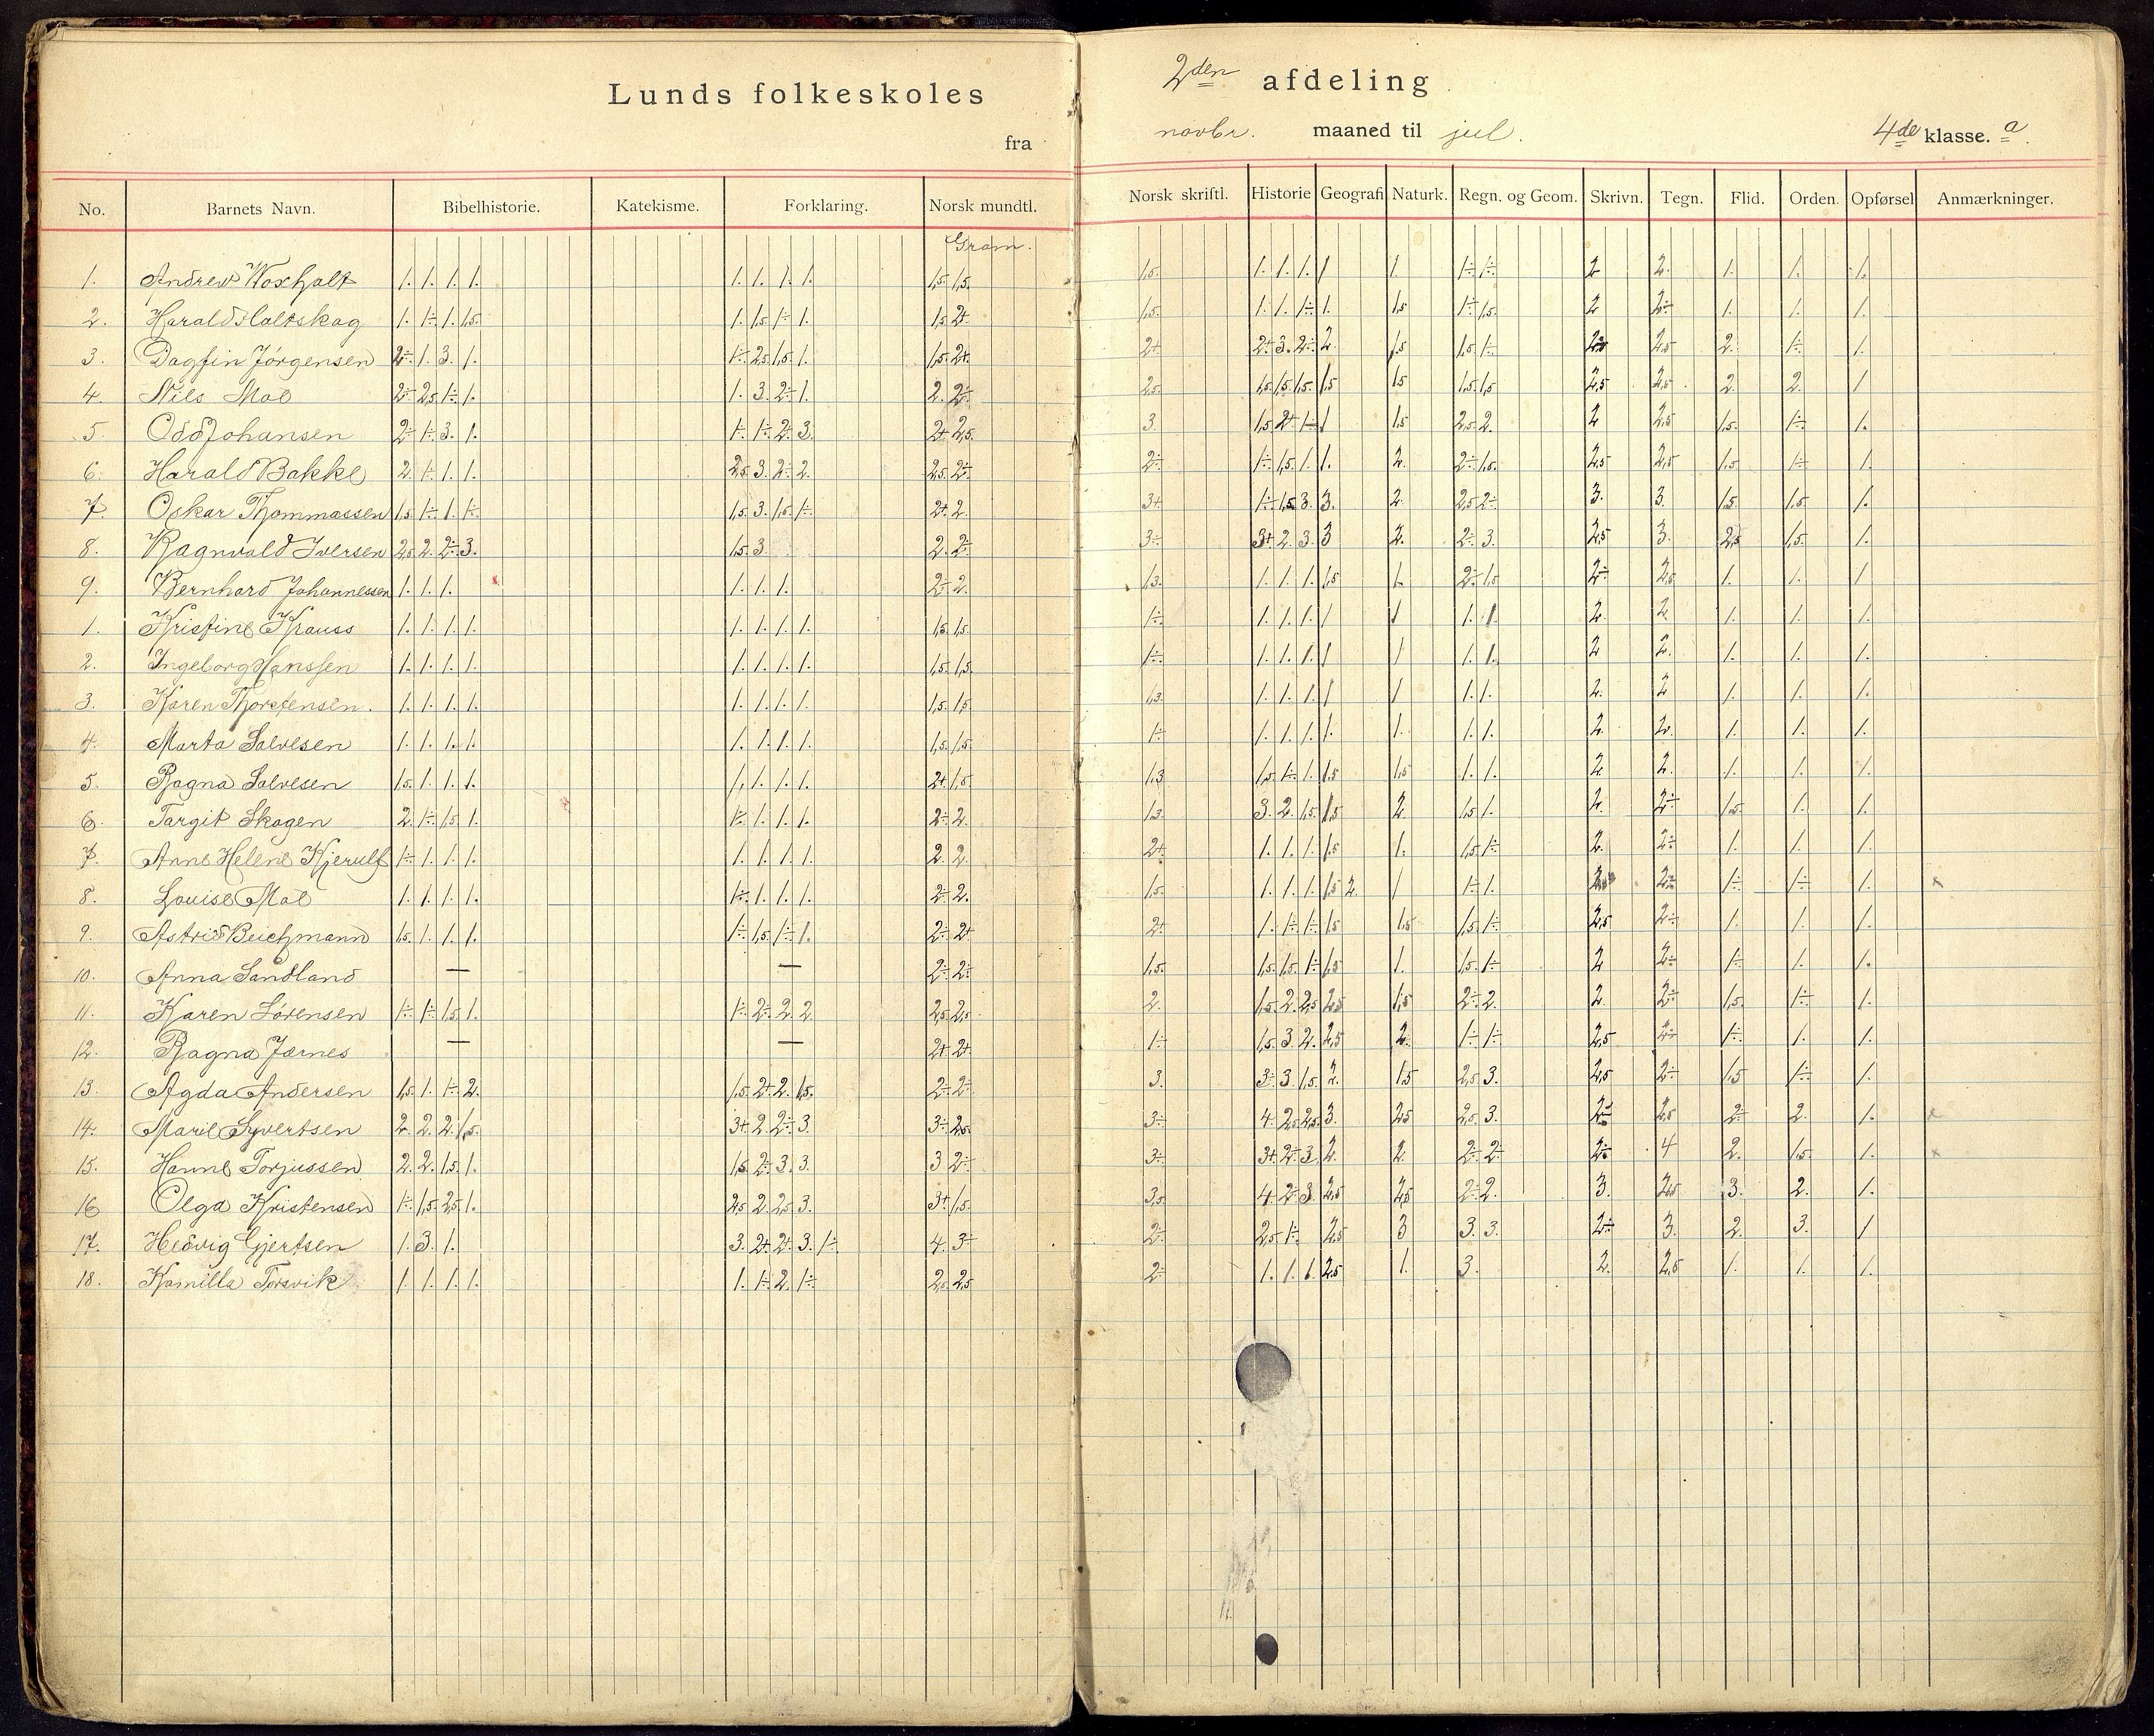 Lunds folkeskoles 2den afdeling
fra novbr. maaned til jul. 4de klasse. a
No. Barnets Navn. Bibelhistorie. Katekisme. Forklaring. Norsk mundtl. Norsk skriftl. Historie Geografi Naturk. Regn. og Geom. Skrivn. Tegn. Flid. Orden. Opførsel Anmærkninger.
Gram.
1. Andrew Woxholt 1. 1. 1. 1. 1. 1. 1. 1. 1,5. 1,5. 1,5. 1. 1. 1. 1 1. 1÷ 1÷ 2 2. 1. 1. 1.
2. Harald Holtskog 1. 1÷ 1. 1,5. 1. 1,5 1÷ 1. 1,5 2+ 1,5. 1. 1. 1÷ 1. 1,5 1÷ 1,5. 2 2÷ 1. 1. 1.
3. Dagfin Jörgensen 2÷ 1. 3. 1. 1÷ 2,5 1,5 1. 1,5 2+. 2+ 2+ 3. 2÷ 2. 1,5 1,5 1÷ 2,5 2. 1÷ 1.
4. Nils Moe 2÷ 2,5 1÷ 1. 1. 3. 2÷ 1. 2. 2÷ 2,5. 1,5 1,5 1,5. 1,5 1,5 1,5. 1,5 2,5 2,5. 2. 2. 1
5 Odd Johansen 2÷ 1÷ 3. 1. 1÷ 1÷ 2÷ 3. 2+ 2,5. 3. 1,5 2+ 1÷ 1 1,5 2,5 2. 2 2,5 1,5. 1÷ 1.
6. Harald Bakke 2. 1÷ 1. 1. 2,5 3. 2÷ 2. 2,5. 2÷ 2÷ 1÷ 1,5. 1. 1. 2. 2÷ 1,5. 2,5 2,5 1,5 1÷ 1.
7. Oskar Thommassen 1,5 1÷ 1. 1÷ 1,5. 3. 1,5. 1÷ 2+ 2. 3+ 1÷ 1,5 3. 3. 2. 2,5 2÷ 3. 3. 1,5. 1,5. 1.
8. Ragnvald Iversen 2,5 2. 2÷ 3. 1,5. 3. 2. 2÷ 3÷ 3+ 2. 3. 3 2. 2÷ 3. 2,5 3. 2,5 1,5. 1.
9. Bernhard Johannessen 1. 1. 1. 1. 1. 1. 2÷ 2. 1,3. 1. 1. 1. 1,5 1. 2÷ 1,5 2÷ 2,5 1. 1. 1
1. Kristine Krauss 1. 1. 1. 1. 1. 1. 1. 1. 1,5 1,5. 1÷ 1. 1. 1. 1 1 1. 1 2. 2 1. 1. 1.
2. Ingeborg Hanssen 1. 1. 1. 1. 1. 1. 1. 1. 1,5. 1,5. 1÷ 1. 1. 1. 1 1 1. 1. 2 2. 1. 1. 1.
3. Karen Thorstensen. 1. 1. 1. 1. 1. 1. 1. 1. 1,5. 1,5 1,3. 1. 1. 1. 1 1 1. 1. 2. 2 1. 1. 1.
4. Marta Salvesen 1. 1. 1. 1. 1. 1. 1. 1. 1,5. 1,5. 1÷ 1. 1. 1. 1. 1. 1. 1. 2. 2. 1. 1. 1.
5. Ragna Salvesen 1,5. 1. 1. 1. 1. 1. 1. 1. 2+ 1,5. 1,3 1,5 1÷ 1. 1,5 1,5 1. 1. 2. 2. 1. 1. 1.
6. Targit Skogen 2. 1÷ 1,5. 1. 1÷ 1. 1. 1. 2÷ 2. 1,3. 3. 2. 1,5. 1,5 2. 1,5 1. 2. 2÷ 1,5. 1. 1.
7. Anne Helene Kjerulf 1÷ 1. 1. 1. 1. 1. 1. 1. 2. 2. 2+ 1. 1. 1. 1,5 1. 1,5 1÷ 2. 2÷ 1. 1. 1.
8. Louise Moe 1. 1. 1. 1. 1÷ 1. 1. 1. 2÷ 2. 1,5. 1. 1. 1. 1,5 2. 1 1÷ 1. 2÷ 1÷ 1÷ 1. x
9. Astrid Beichmann 1,5. 1. 1. 1. 1÷ 1,5 1÷ 1. 2÷ 2+ 2+ 1. 1÷ 1÷ 1,5 1,5 1,5. 1÷ 2,5 2÷ 1. 1. 1.
10. Anna Sandland — — 2÷ 2÷ 1,5. 1,5. 1,5. 1÷ 1,5 1. 1,5 1÷ 2 2÷ 1÷ 1. 1.
11. Karen Sörensen 1÷ 1÷ 1,5 1. 1÷ 2÷ 2. 2. 2,5 2,5 2. 1,5. 2. 2,5 2,5 1,5 2÷ 2. 2. 2÷ 1,5. 1÷ 1.
12. Ragna Jærnes — — 2+ 2+ 1÷ 1,5. 3. 2. 2,5 2. 1÷ 1÷ 2,5 2÷ 1÷ 1. 1.
13. Agda Andersen 1,5. 1. 1÷ 2. 1,5. 2+ 2. 1,5. 2÷ 2÷ 3. 3÷ 3. 1,5. 2. 1,5 2,5 3. 2,5 2÷ 1,5 1÷ 1.
14. Marie Syvertsen 2. 2. 2. 1,5. 3+ 2. 2÷ 3. 3÷ 2,5. 3÷ 4. 2,5 2,5 3. 2,5 2,5 3. 2,5 2÷ 2. 1. x
15. Hanne Torjussen 2. 2. 1,5. 1. 1,5. 2÷ 3. 3. 3 2÷ 3÷ 3+ 2÷ 3. 2. 2. 2÷ 2÷ 2÷ 4 2. 1,5. 1. x
16 Olga Kristensen 1÷ 1,5. 2,5. 1. 2,5 2. 2,5. 3. 3+ 1,5. 3,5. 4. 2÷ 3. 2,5 2,5 2÷ 2. 3. 2,5 3. 2. 1.
17. Hedvig Gjertsen 1. 3. 1. 3. 2+ 2+ 3. 1÷ 4. 3÷ 2÷ 2,5 1÷ 2,5 3 3. 3. 2÷ 3. 2. 3. 1
18. Kamilla Torsvik 1. 1. 1. 1. 1. 1÷ 2. 1÷ 2,5. 2,5 2÷ 1. 1. 1. 2,5 1. 3. 2. 2,5 1. 1. 1.